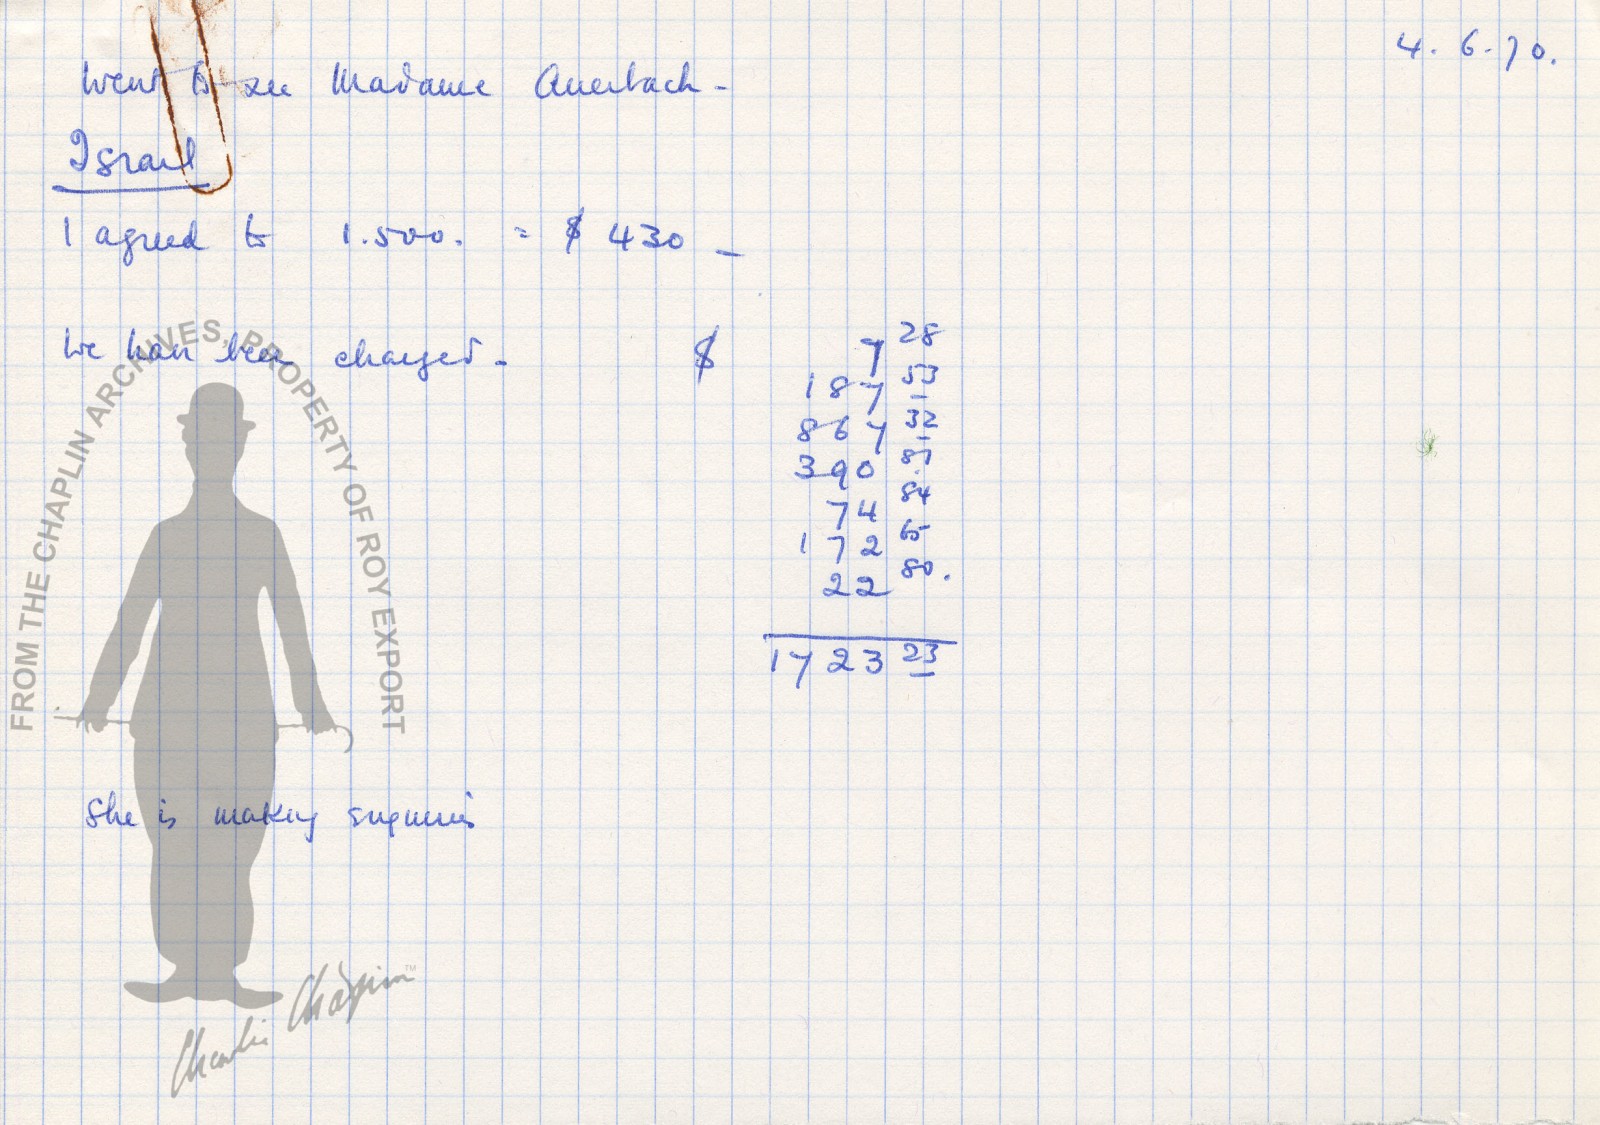 4.6.70.
Went to see Madame Auerbach -
Israel
I agreed to 1.500. = $ 430 -
We have been charged - $ 7 28
187 53
867 32
390 81
74 84
172 65
22 80.
1723 23
She is making enquiries
FROM THE CHAPLIN ARCHIVES, PROPERTY OF ROY EXPORT
Charlie Chaplin™